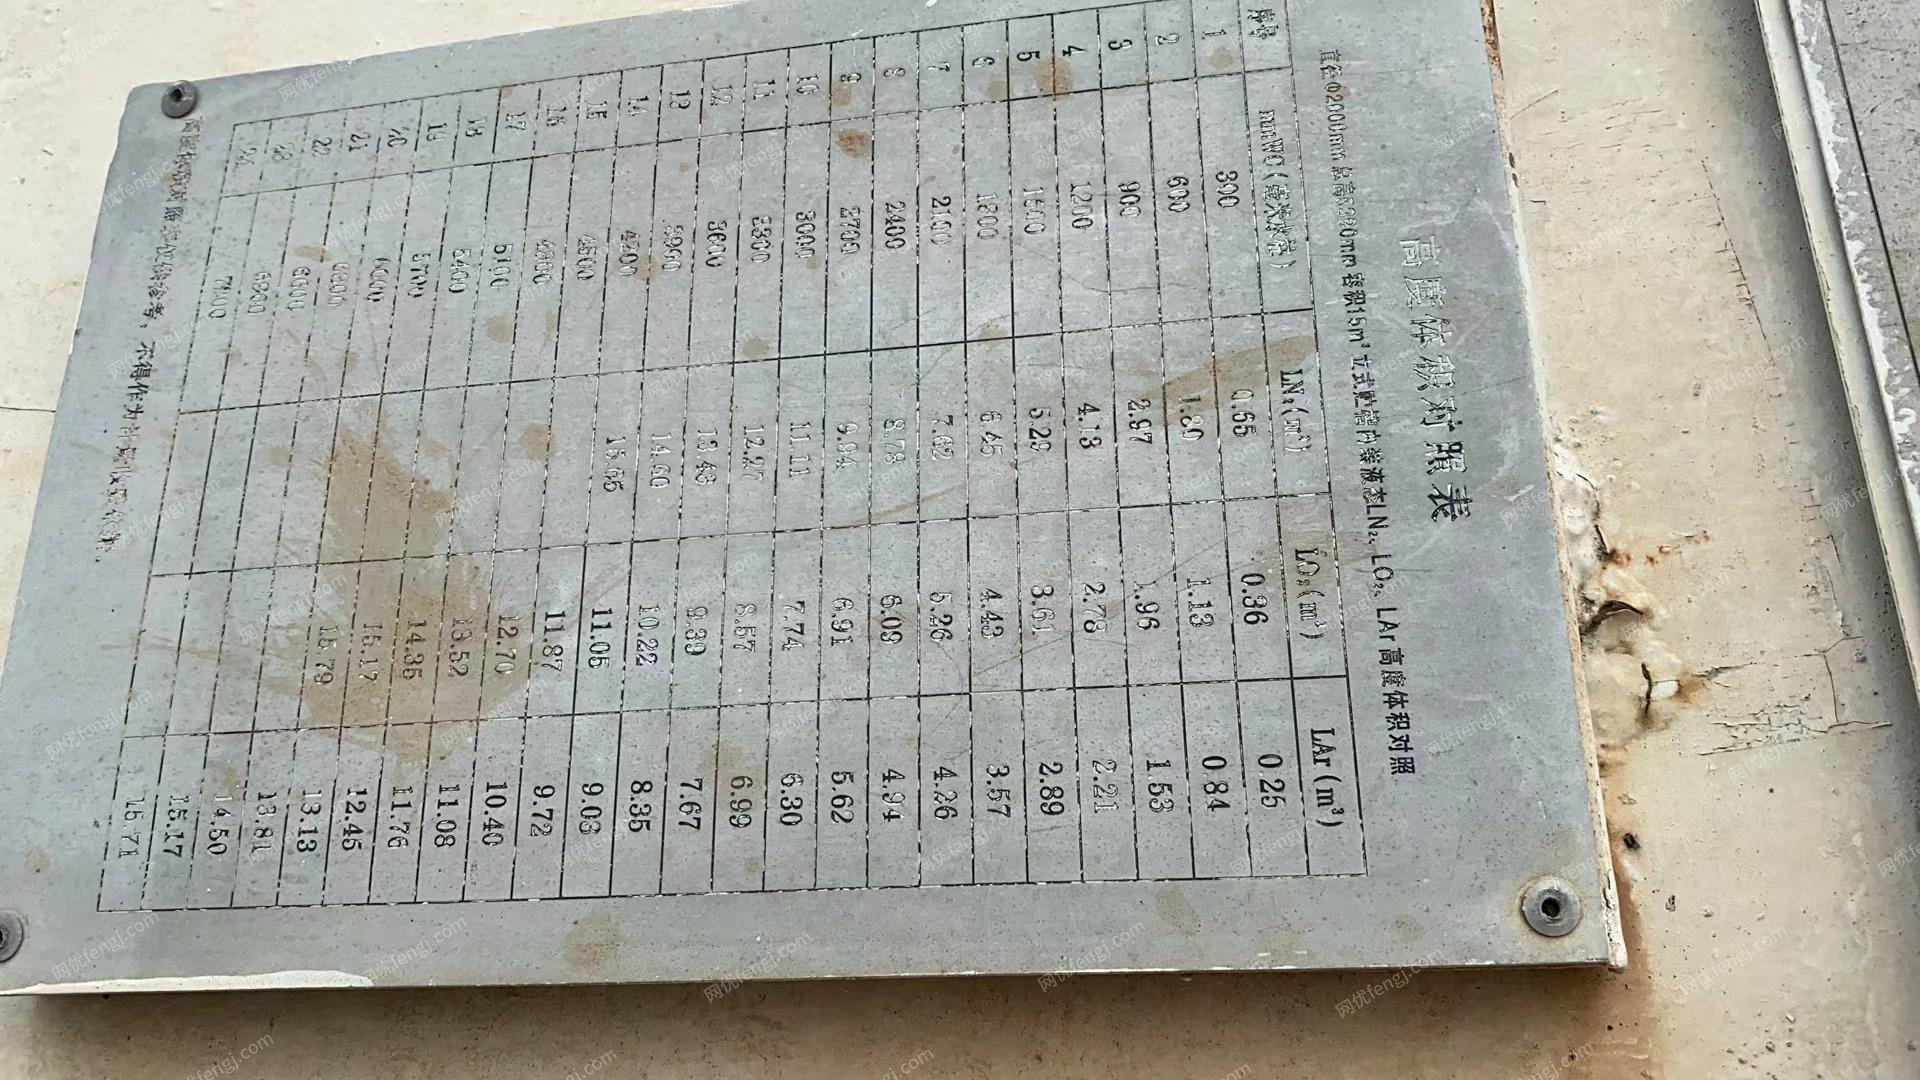 高度体积对照表
容积15m³ 立式贮槽内容液态LN₂、LO₂、LAr 高度体积对照
序号 mmWC(毫米水柱) LN₂(m³) LO₂(m³) LAr(m³)
1 300 0.65 0.36 0.25
2 600 1.80 1.13 0.84
3 900 2.97 1.96 1.53
4 1200 4.13 2.78 2.21
5 1500 5.29 3.61 2.89
6 1800 6.45 4.43 3.57
7 2100 7.62 5.26 4.26
8 2400 8.78 6.09 4.94
9 2700 9.94 6.91 5.62
10 3000 11.11 7.74 6.30
11 3300 12.27 8.57 6.99
12 3600 13.43 9.39 7.67
13 3900 14.60 10.22 8.35
14 4200 15.65 11.05 9.03
15 4500 11.87 9.72
16 4800 12.70 10.40
17 5100 13.52 11.08
18 5400 14.35 11.76
19 5700 15.17 12.45
20 6000 15.79 13.13
21 6300 13.81
22 6600 14.50
23 6900 15.17
24 15.71
不得作为计量收费依据。
网优fengj.com